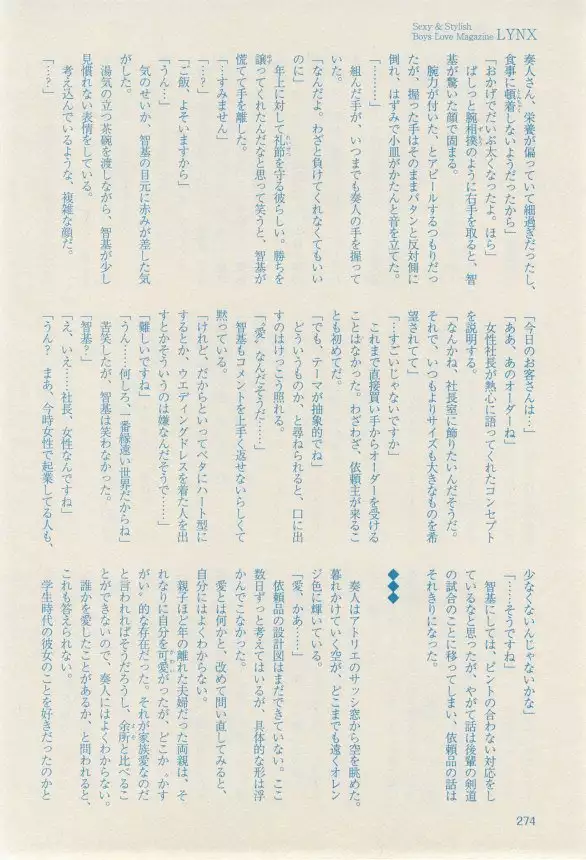 Sexy & Stylish
Boys Love Magazine LYNX
奏人さん、栄養が偏っていて細過ぎだったし、
食事に頓着しないようだったから」
「おかげでだいぶ太くなったよ。ほら」
ぱしっと腕相撲のように右手を取ると、智
基が驚いた顔で固まる。
腕力が付いた、とアピールするつもりだっ
たが、握った手はそのままパタンと反対側に
倒れ、はずみで小皿がかたんと音を立てた。
「………」
組んだ手が、いつまでも奏人の手を握って
いた。
「なんだよ。わざと負けてくれなくてもいい
のに」
年上に対して礼節を守る彼らしい。勝ちを
譲ってくれたんだなと思って笑うと、智基が
慌てて手を離した。
「…すみません」
「…?」
「ご飯、よそいますから」
「うん…」
気のせいか、智基の目元に赤みが差した気
がした。
湯気の立つ茶碗を渡しながら、智基が少し
見慣れない表情をしている。
考え込んでいるような、複雑な顔だ。
「…?」
「今日のお客さんは…」
「ああ、あのオーダーね」
女性社長が熱心に語ってくれたコンセプト
を説明する。
「なんかね、社長室に飾りたいんだそうだ。
それで、いつもよりサイズも大きなものを希
望されてて」
「…すごいじゃないですか」
これまで直接買い手からオーダーを受ける
ことはなかった。わざわざ、依頼主が来るこ
とも初めてだ。
「でも、テーマが抽象的でね」
どういうものか、と尋ねられると、口に出
すのはけっこう照れる。
「『愛』なんだそうだ……」
智基もコメントを上手く返せないらしくて
黙っている。
「けれど、だからといってベタにハート型に
するとか、ウエディングドレスを着た人を出
すとかそういうのは嫌なんだそうで……」
「難しいですね」
「うん……何しろ、一番縁遠い世界だからね」
苦笑したが、智基は笑わなかった。
「智基?」
「え、いえ……社長、女性なんですね」
「うん? まあ、今時女性で起業してる人も、
少なくないんじゃないかな」
「……そうですね」
智基にしては、ピントの合わない対応をし
ているなと思ったが、やがて話は後輩の剣道
の試合のことに移ってしまい、依頼品の話は
それきりになった。
◆◆◆
奏人はアトリエのサッシ窓から空を眺めた。
暮れかけていく空が、どこまでも遠くオレン
ジ色に輝いている。
「愛、かあ……」
依頼品の設計図はまだできていない。ここ
数日ずっと考えてはいるが、具体的な形は浮
かんでこなかった。
愛とは何かと、改めて問い直してみると、
自分にはよくわからない。
親子ほど年の離れた夫婦だった両親は、そ
れなりに自分を可愛がったが、どこか“かす
がい”的な存在だった。それが家族愛なのだ
と言われればそうだろうし、余所と比べるこ
とができないので、奏人にはよくわからない。
誰かを愛したことがあるか、と問われると、
これも答えられない。
学生時代の彼女のことを好きだったのかと
274